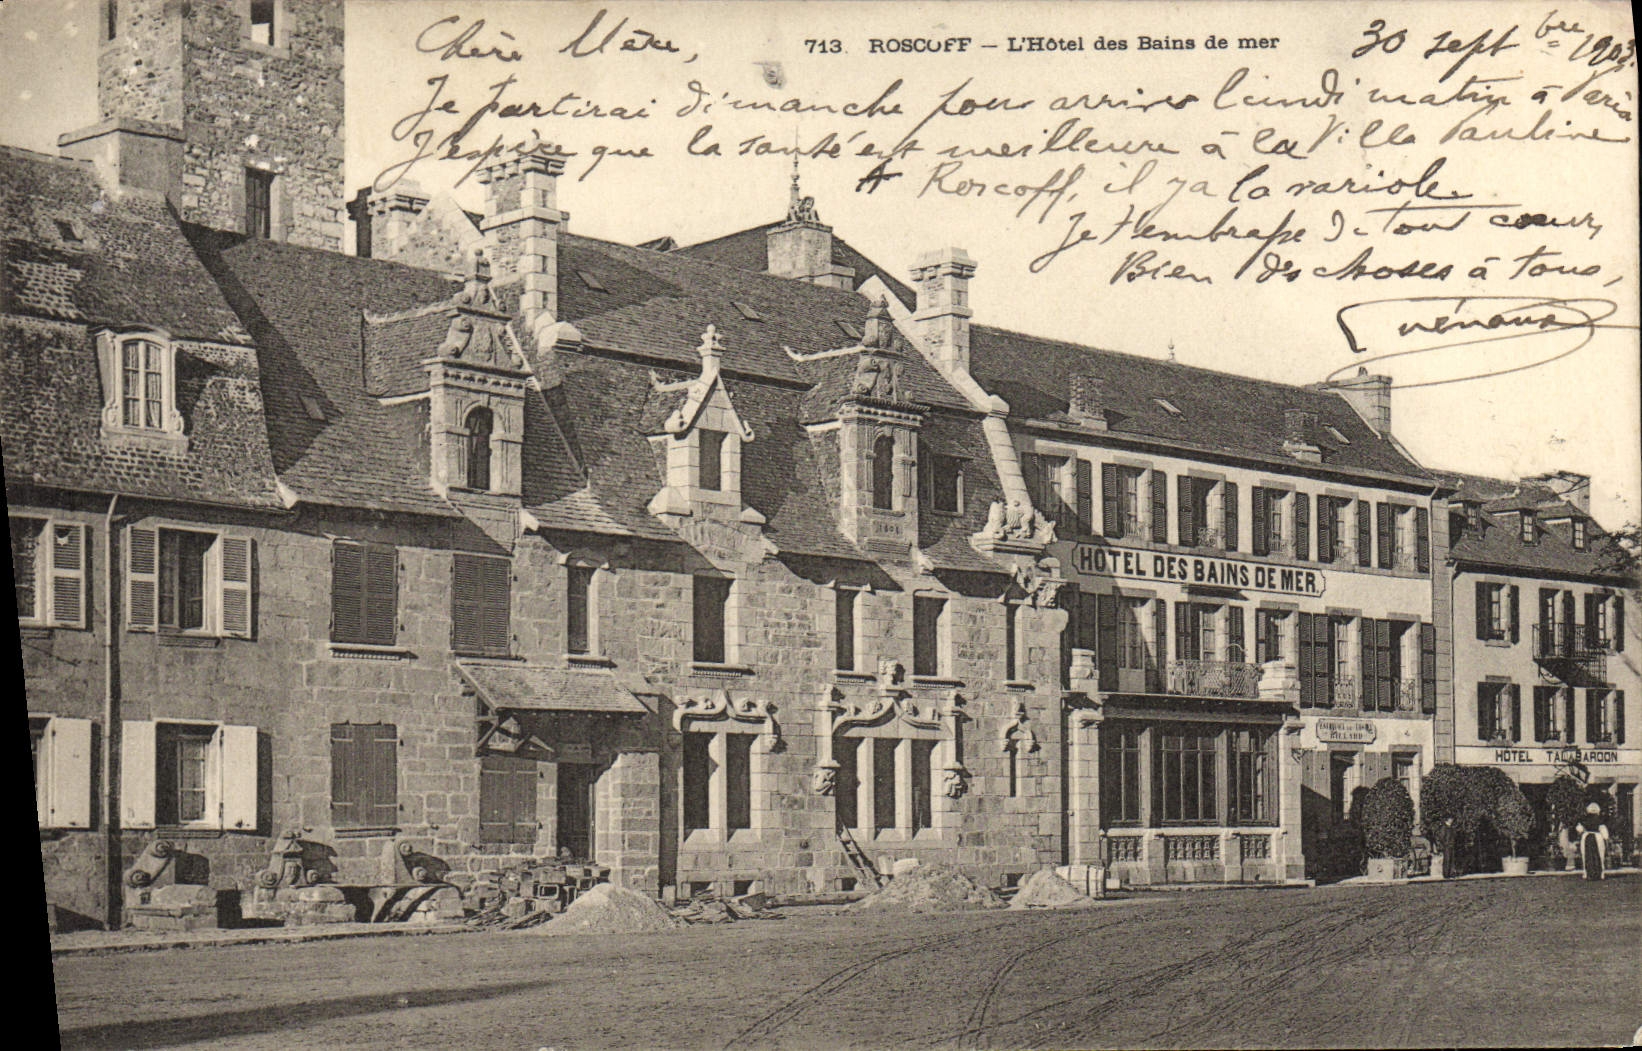 713. ROSCOFF – L'Hôtel des Bains de mer
30 sept bre 1903.
Chère Mère,
Je partirai dimanche pour arriver lundi matin à Paris
J'espère que la santé est meilleure à la Villa Pauline
A Roscoff, il y a la variole.
Je t'embrasse de tout coeur,
Bien des choses à tous,
HÔTEL DES BAINS DE MER.
BILLARD
HÔTEL TALABARDON